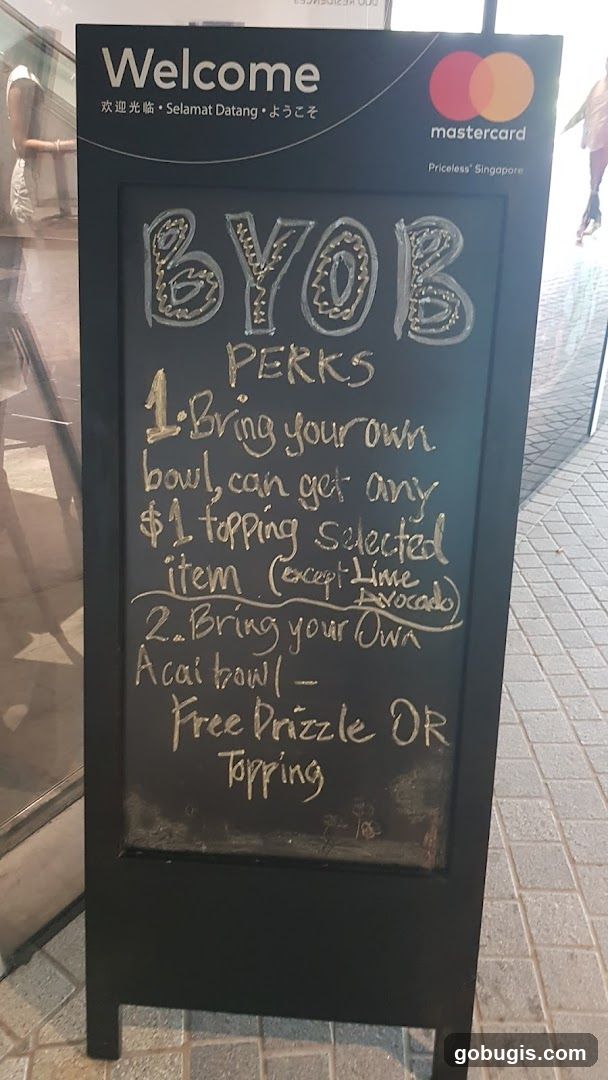 DUO RESIDENCES
Welcome
欢迎光临 • Selamat Datang • ようこそ
mastercard
Priceless® Singapore
BYOB
PERKS
1. Bring your own
bowl, can get any
$1 topping selected
item (except Lime
Avocado)
2. Bring your Own
Acai bowl –
Free Drizzle OR
Topping
gobugis.com